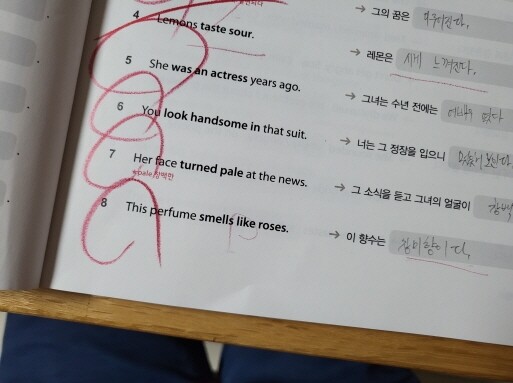 → 그의 꿈은
4 Lemons taste sour. → 레몬은 시게 느껴진다.
5 She was an actress years ago. → 그녀는 수년 전에는
6 You look handsome in that suit. → 너는 그 정장을 입으니
7 Her face turned pale at the news. → 그 소식을 듣고 그녀의 얼굴이
*pale 창백한
8 This perfume smells like roses. → 이 향수는 장미향이다.